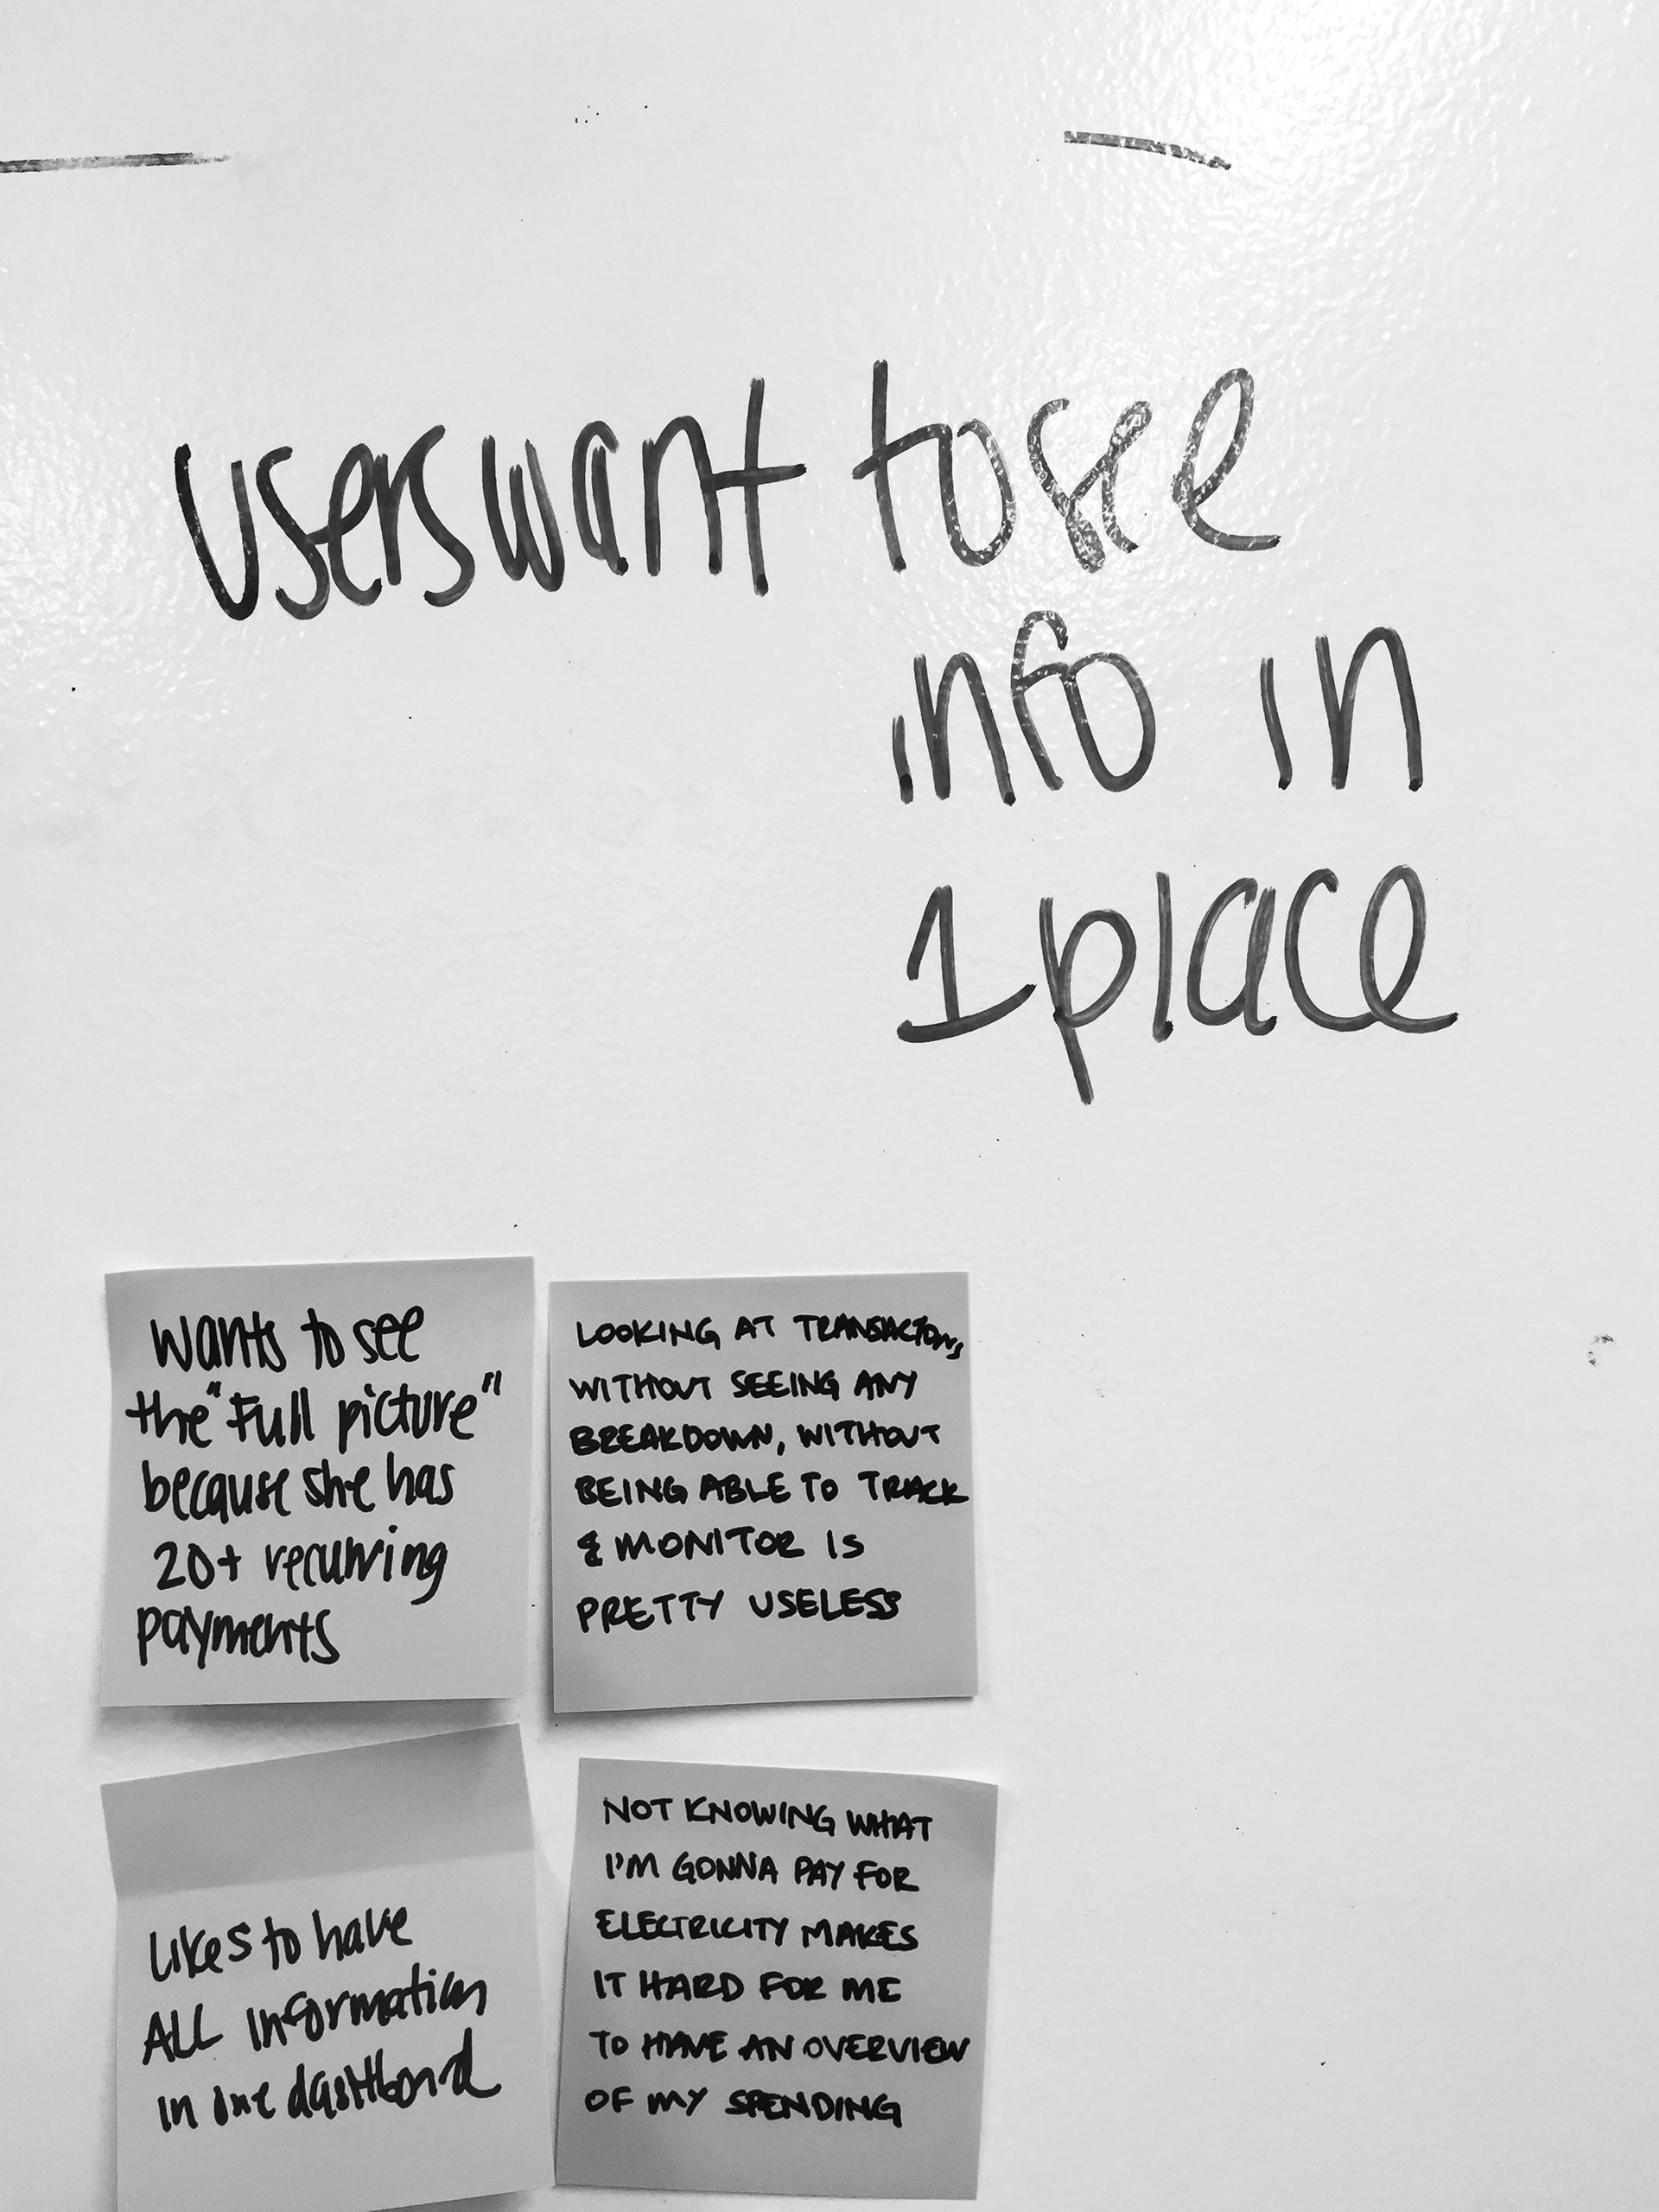 users want to see
info in
1 place
wants to see
the "Full picture"
because she has
20+ recurring
payments
LOOKING AT TRANSACTIONS
WITHOUT SEEING ANY
BREAKDOWN, WITHOUT
BEING ABLE TO TRACK
& MONITOR IS
PRETTY USELESS
likes to have
ALL information
in one dashboard
NOT KNOWING WHAT
I'M GONNA PAY FOR
ELECTRICITY MAKES
IT HARD FOR ME
TO HAVE AN OVERVIEW
OF MY SPENDING